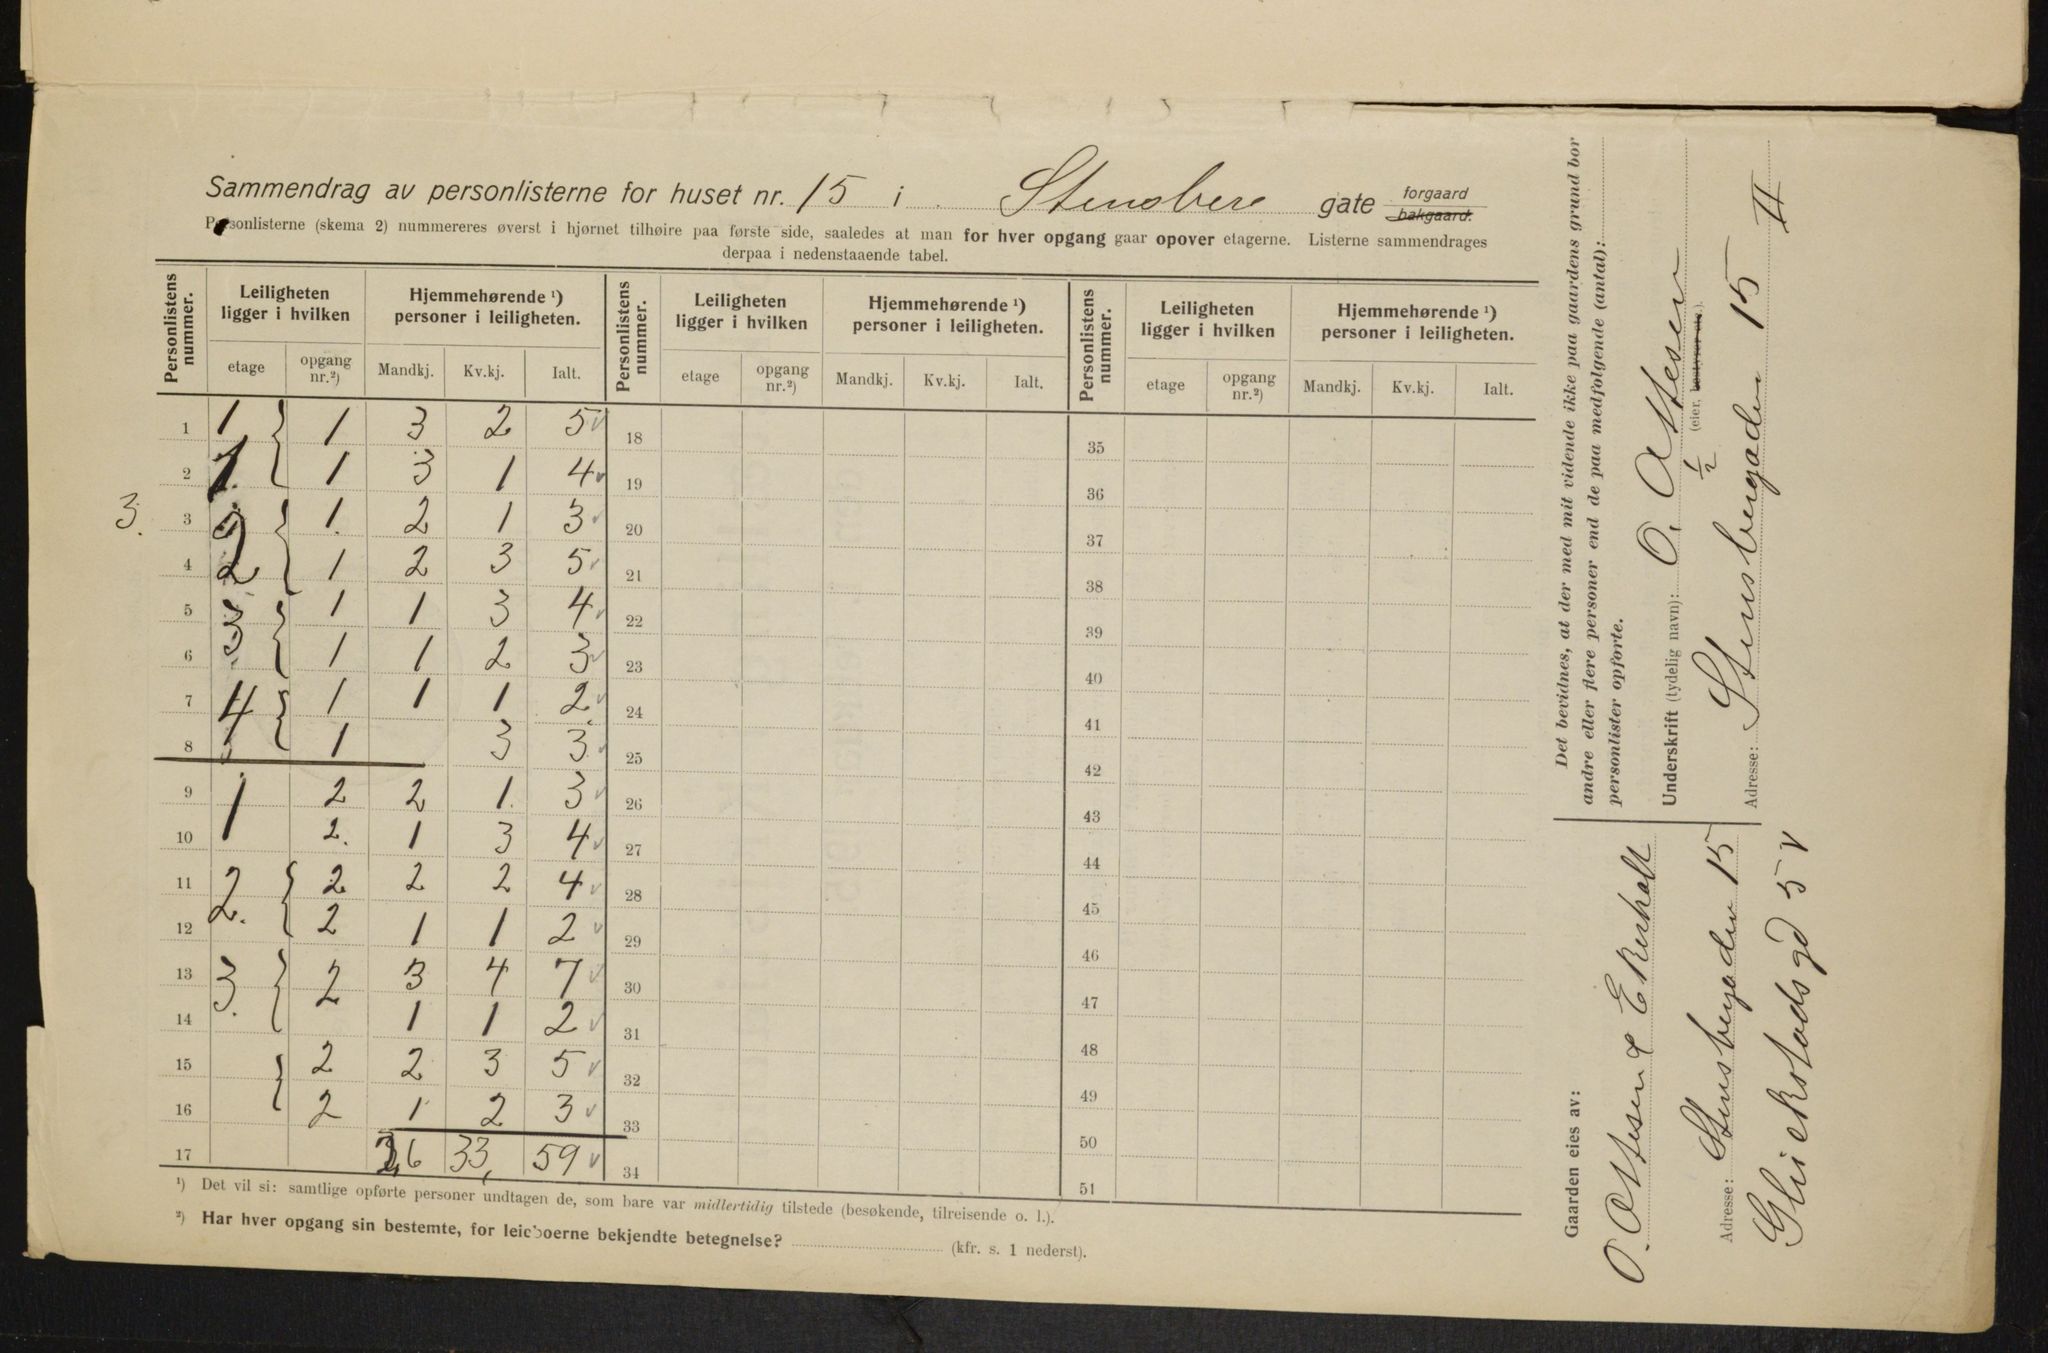 Sammendrag av personlisterne for huset nr. 15 i Stensberg gate forgaard bakgaard.
Personlisterne (skema 2) nummereres øverst i hjørnet tilhøire paa første side, saaledes at man for hver opgang gaar opover etagerne. Listerne sammendrages
derpaa i nedenstaaende tabel.
Personlistens nummer. Leiligheten ligger i hvilken Hjemmehørende ¹) personer i leiligheten. Personlistens nummer. Leiligheten ligger i hvilken Hjemmehørende ¹) personer i leiligheten. Personlistens nummer. Leiligheten ligger i hvilken Hjemmehørende ¹) personer i leiligheten.
etage opgang nr.²) Mandkj. Kv.kj. Ialt. etage opgang nr.²) Mandkj. Kv.kj. Ialt. etage opgang nr.²) Mandkj. Kv.kj. Ialt.
1 1 1 3 2 5 18 35
2 1 1 3 1 4 19 36
3. 3 1. 2 1 3 20 37
4 2 1 2 3 5 21 38
5 3 1 1 3 4 22 39
6 1 1 2 3 23 40
7 4 1 1 1 2 24 41
8 1 3 3 25 42
9 1 2 2 1. 3 26 43
10 2. 1 3 4 27 44
11 2. 2 2 2 4 28 45
12 2 1 1 2 29 46
13 3. 2 3 4 7 30 47
14 1 1 2 31 48
15 2 2 3 5 32 49
16 2 1 2 3 33 50
17 26 33, 59 34 51
¹) Det vil si: samtlige opførte personer undtagen de, som bare var midlertidig tilstede (besøkende, tilreisende o. l.).
²) Har hver opgang sin bestemte, for leieboerne bekjendte betegnelse? (kfr. s. 1 nederst).
Det bevidnes, at der med mit vidende ikke paa gaardens grund bor
andre eller flere personer end de paa medfølgende (antal):
personlister opførte.
Underskrift (tydelig navn): O. Ottesen
(eier, bestyrer etc.).
Adresse: Stensbergaden 15 II
Gaarden eies av:
O. Ottesen & Ekerholt
Adresse: Stensbergaden 15
Glückstads gd 5 V